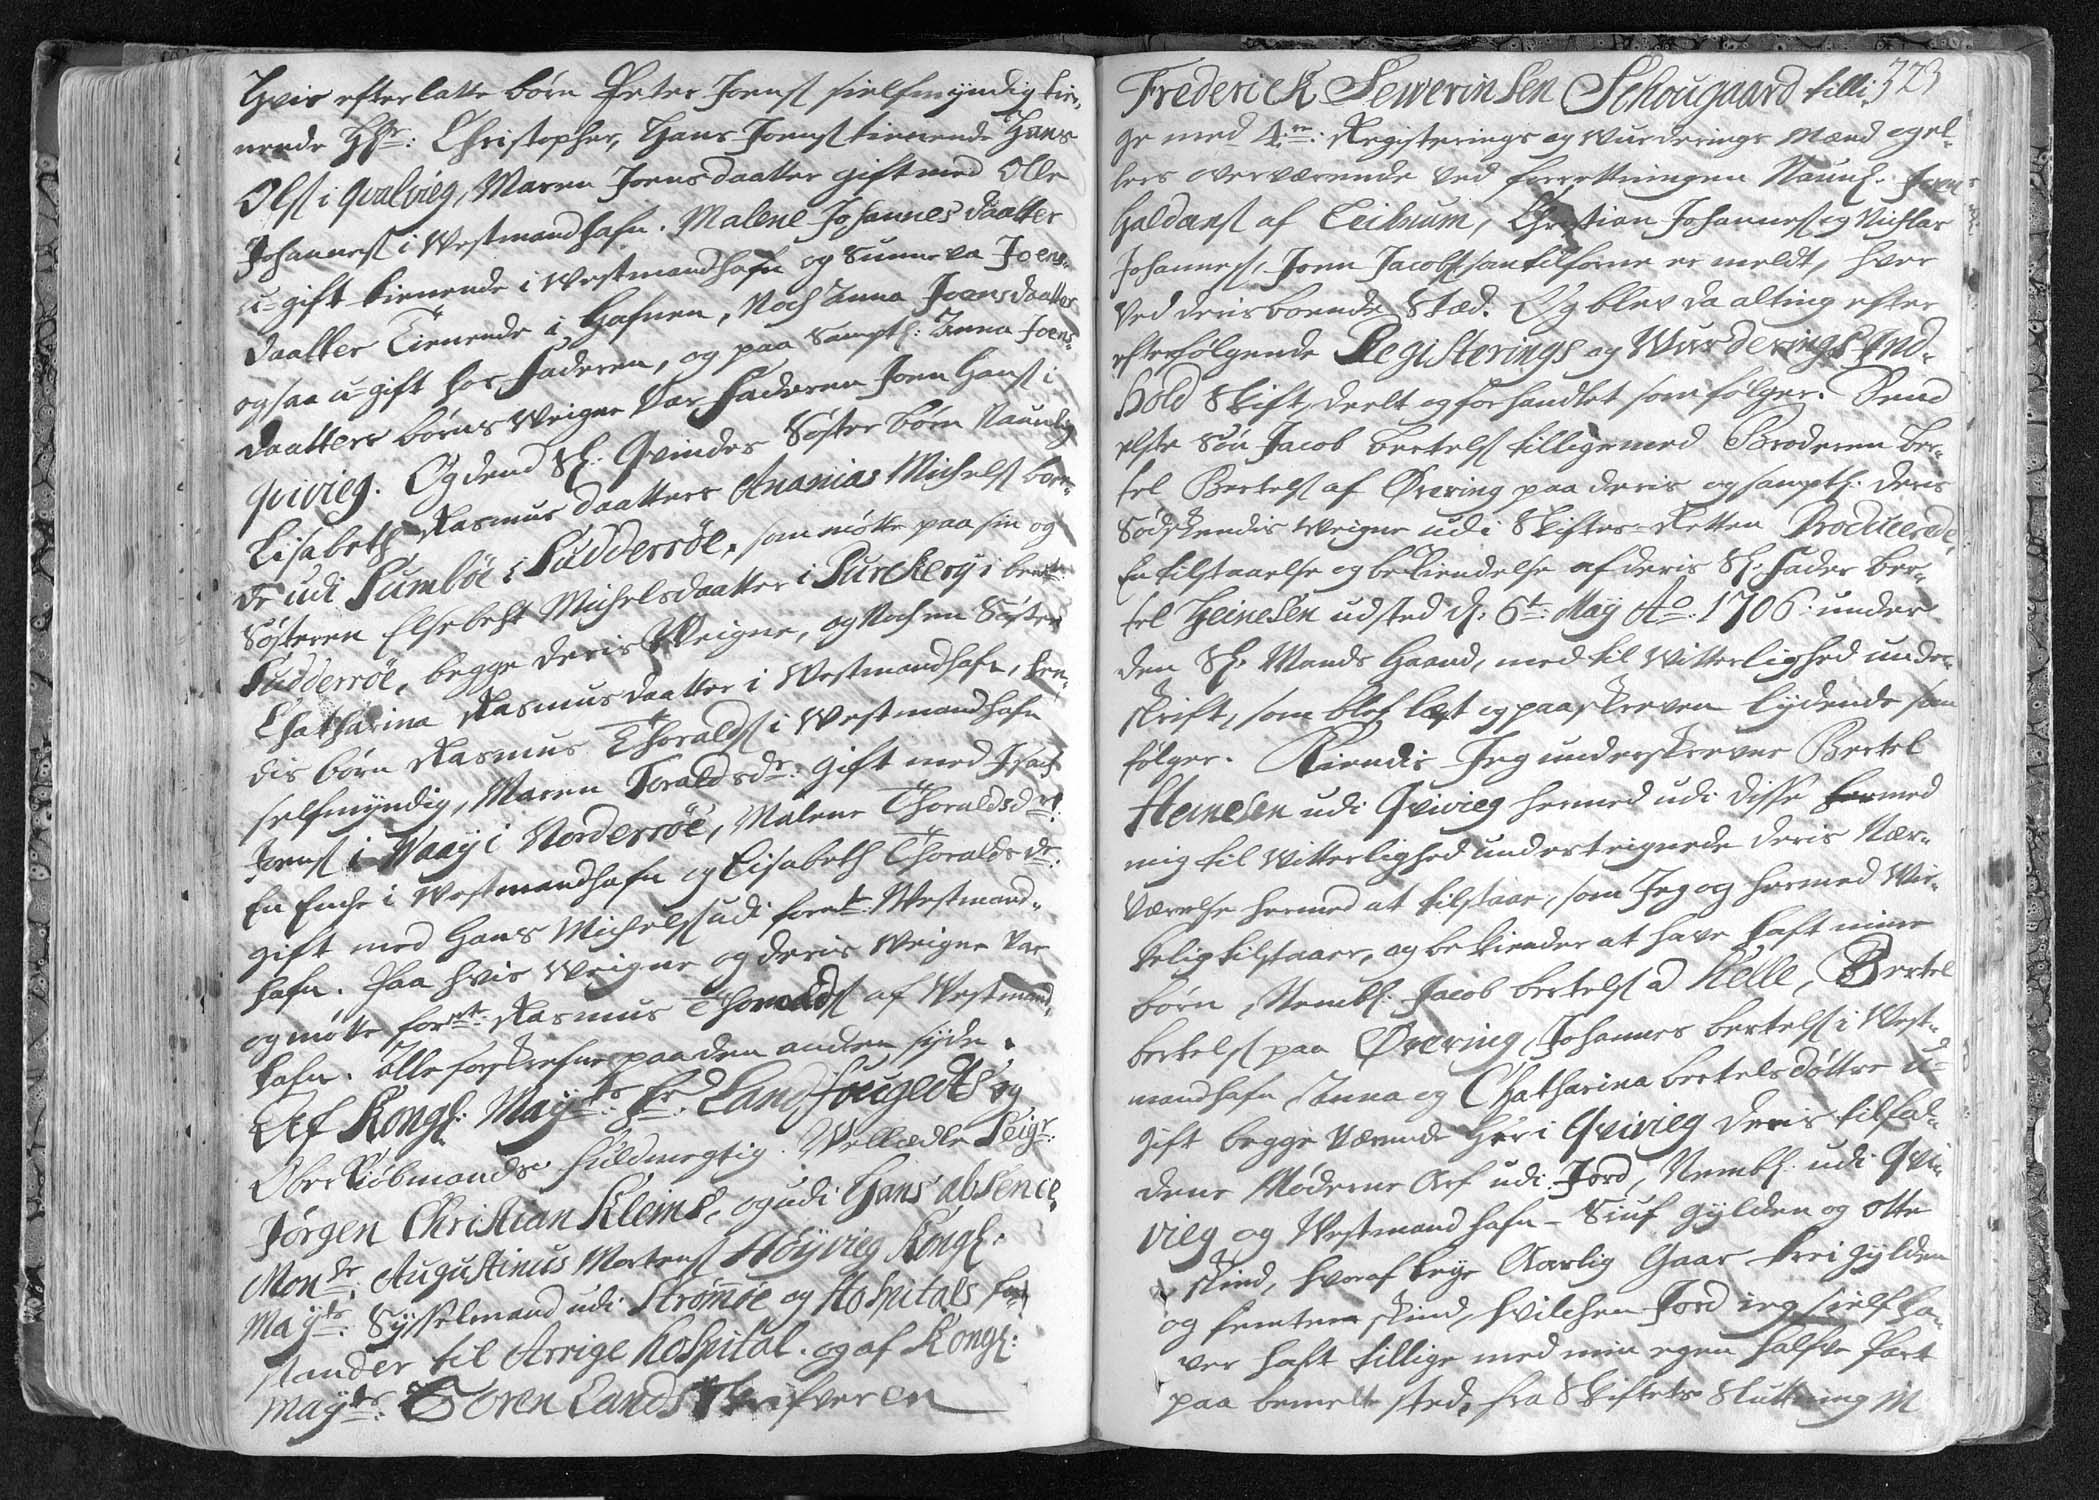 Hvis efterlatte børn Peter Joensß sielfmyndig tie„
nende Hr: Christopher, Hans Joensß tienende Hans
Olsß i qvalvieg, Maren Joensdaatter gift med Olle
Johannesß i Westmandhafn. Malene Johannesdaatter
u-gift tienende i Westmandhafn og Sunneva Joens„
daatter Tienende i Hafnen, Noch Anna Joensdaatter
ogsaa u-gift hos Faderen, og paa Sampt: Anna Joens„
daatters børns Weigne Var Faderen Joen Hansß i
qvivieg. Og dend Sl: Qvindes Søster børn Naunlig
Lisabeth Rasmusdaatters Ananias Michelsß boen„
de udi Sumbøe i Sudderøe, som møtte paa sin og
Søsteren Elsebeht Michelsdaatter i Purckerij i bemt:
Sudderrøe, begge deris Weigne, og Noch en Søster
Chatharina Rasmusdaatter i Westmandhafn, hen„
dis børn Rasmus Thoraldsß i Westmandhafn
selfmyndig, Maren Toraldsdr: gift med Isach
Joensß i Waaij i Norderøe, Malene Thoraldsdr:
En Enche i Westmandhafn og Lisabeth Thoraldsdr:
gift med Hans Michelsß udi fornt: Westmand„
hafn. Paa hvis Weigne og deris Weigne Var
og møtte fornt: Rasmus Thoraldsß af Westmand„
hafn. Alle forskrefne paa den anden syde.
Af Kongl: Maijts: Hr: Landfougedts og
Ober Kiøbmands fuldmegtig. Velædle Seigr:
Jørgen Christian Klein, og udi Hans absence,
Monsr: Augustinus Mortensß Høijvieg Kongl:
Maijts: Sysselmand udi Strømøe og Hospitals for„
stander til Arrige hospital. og af Kongl:
Maijts: Soren Landskrifveren
323
Frederick Sewerinsen Schougaard tilli„
ge med 4re: Registerings og Wurderings Mænd og el„
lers overværende Ved forrettningen Naunl: Joen
Haldansß af Leinum, Christian Johannesß og Nichlas
Johannesß, Joen Jacobsß som tilforne er meldt, hver
Ved deris boende Stæd. Og blev da alting efter
efterfølgende Registerings og Wurderings Ind„
hold Skift, deelt og forhandlet som følger. Dend
elste Søn Jacob bertelsß tilligemed Broderen Ber„
tel Bertelsß af Øreering paa deris og sampt: deris
Sødskendis Weigne udi Skiftes-Retten Producerede,
En tilstaaelse og bekiendelse af deris Sl: Fader Ber„
tel Heinesen udsted d: 6t: Maij Ao: 1706. under
den Sl: Mands Haand, med til Vitterlighed under„
skrift, som blef læst og paaskreven lydende som
følger. Kiendis Jeg underskrevne Bertel
Heinesen udi Qvivieg hermed udi disse med
mig til Vitterlighed underteignede deris Nær„
værelse hermed at tilstaae, som Jeg og hermed Vir„
kelig tilstaaer, og bekiender at have haft mine
børn, Nembl: Jacob bertelsß a Kelle, Bertel
bertelsß paa Øreering, Johannes bertelsß i West„
mandhafn, Anna og Chatharina bertelsdøttre u-
gift begge Værende her i Qvivieg deris tilfal„
dene Møderne Arf udi Jord, Nembl: udi Qvi„
vieg og Westmandhafn - Siuf gylden og otte
skind, hvoraf leije Aarlig Gaar trei gylden
og femten skind, hvilchen Jord ieg sielf ha„
ver haft tillige med min egen halfve Part
paa bemelte sted, fra Skiftets Sluttning M